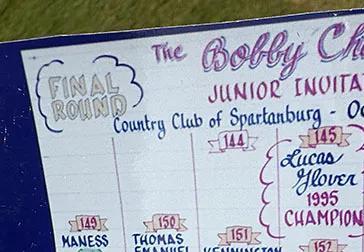 The Bobby Ch
FINAL ROUND
JUNIOR INVITA
Country Club of Spartanburg - Oc
144
145
Lucas
Glover
1995
CHAMPION
149
150
151
152
MANESS
THOMAS
EMANUEL
KENNINGTON